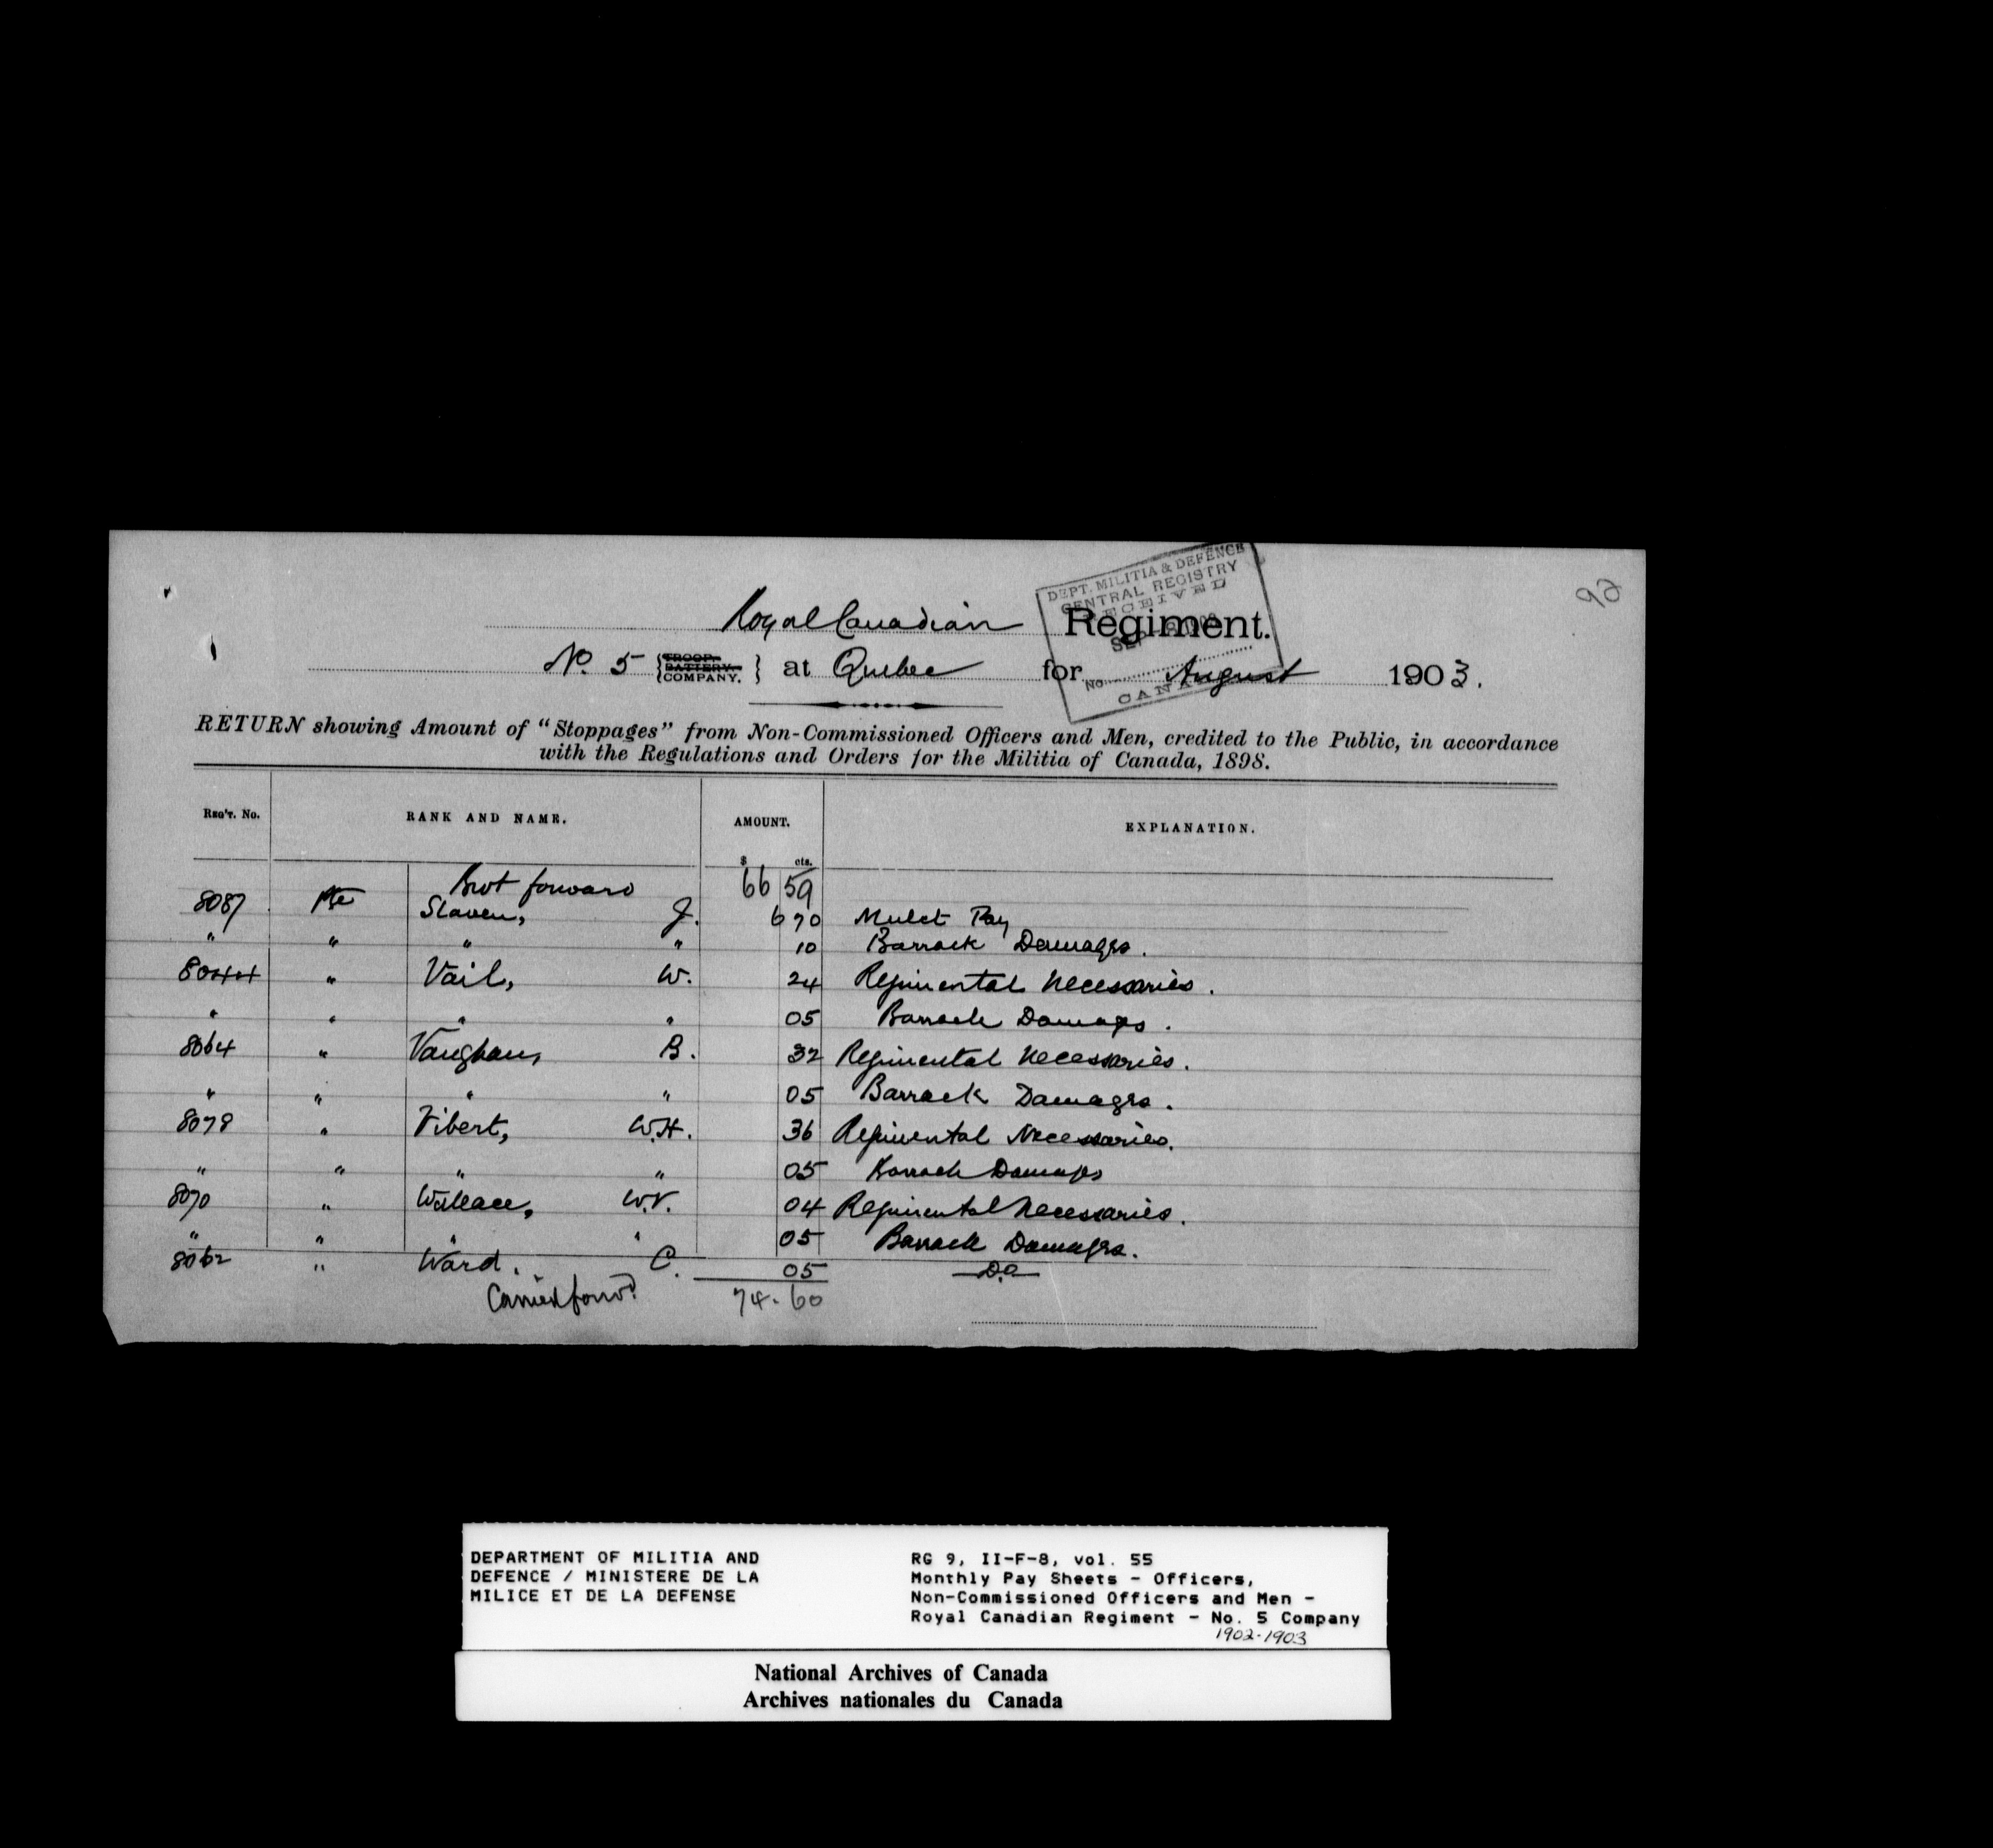 92
DEPT. MILITIA & DEFENCE
CENTRAL REGISTRY
RECEIVED
SEP
No.
CANADA
Royal Canadian Regiment.
No. 5 {TROOP. BATTERY. COMPANY.} at Quebec for August 1903.
RETURN showing Amount of "Stoppages" from Non-Commissioned Officers and Men, credited to the Public, in accordance
with the Regulations and Orders for the Militia of Canada, 1898.
REG'T. No. RANK AND NAME. AMOUNT. EXPLANATION.
$ cts.
Brot forward 66 59
8087 Pte Slaven, J. 6 70 Mulct Pay
" " " " 10 Barrack Damages.
8044 " Vail, W. 24 Regimental Necessaries.
" " " " 05 Barrack Damages.
8064 " Vaughan, B. 32 Regimental Necessaries.
" " " " 05 Barrack Damages.
8078 " Vibert, W.H. 36 Regimental Necessaries.
" " " " 05 Barrack Damages
8070 " Wallace, W.V. 04 Regimental Necessaries.
" " " " 05 Barrack Damages.
8062 " Ward, C. 05 Do
Carried forwd. 74.60
DEPARTMENT OF MILITIA AND
DEFENCE / MINISTERE DE LA
MILICE ET DE LA DEFENSE
RG 9, II-F-8, vol. 55
Monthly Pay Sheets - Officers,
Non-Commissioned Officers and Men -
Royal Canadian Regiment - No. 5 Company
1902-1903
National Archives of Canada
Archives nationales du Canada